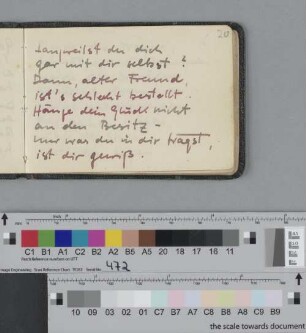 20
Langweilst du dich
gar mit dir selbst?
Dann, alter Freund,
ist's schlecht bestellt.
Hänge dein Glück nicht
an den Besitz –
nur was du in dir trägst,
ist dir gewiß.
C1 B1 A1 C2 B2 A2 B5 A5 20 18 17 16 11
472
10 09 03 02 01 C7 B7 A7 C8 B8 A8 C9 B9
the scale towards document